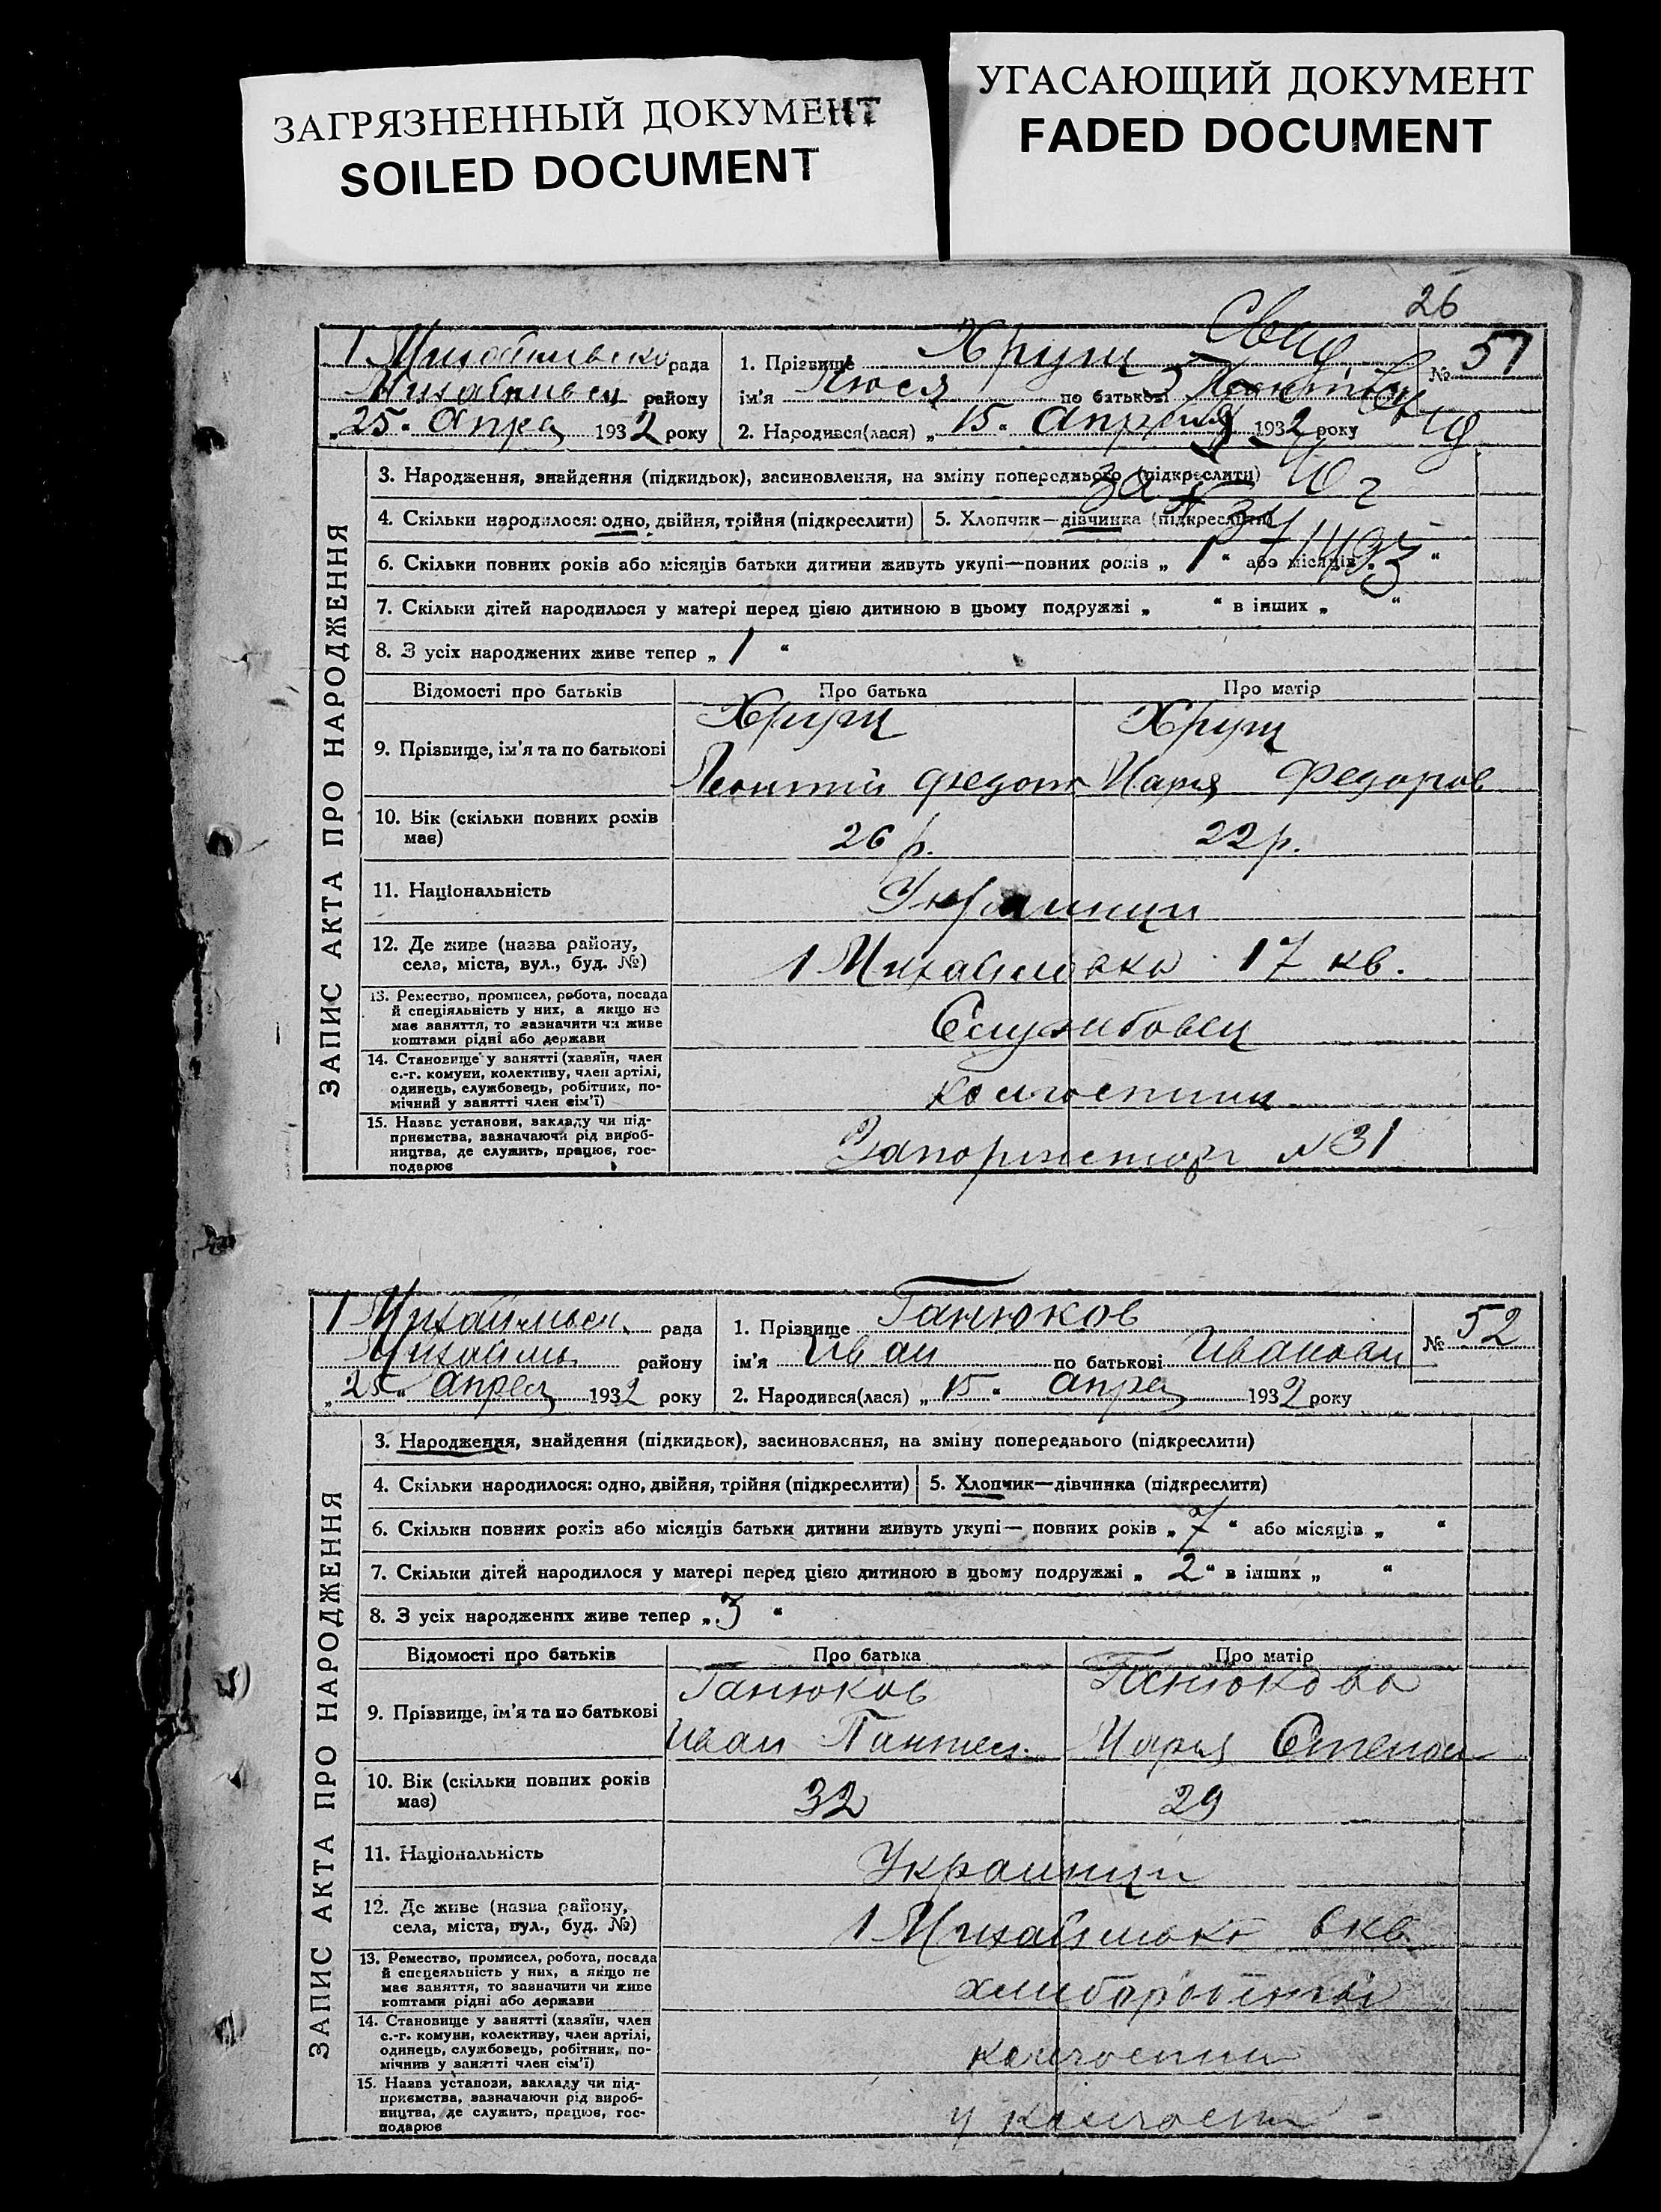 ЗАГРЯЗНЕННЫЙ ДОКУМЕНТ
SOILED DOCUMENT
УГАСАЮЩИЙ ДОКУМЕНТ
FADED DOCUMENT
26
ЗАПИС АКТА ПРО НАРОДЖЕННЯ
рада
району
„25“ Апрел 1932 року
1. Прізвище Хрущ
№ 51
ім'я Люся по батькові
2. Народився(лася) „15“ Апреля 1932 року
3. Народження, знайдення (підкидьок), засиновлення, на зміну попереднього (підкреслити)
4. Скільки народилося: одно, двійня, трійня (підкреслити)
5. Хлопчик—дівчинка (підкреслити)
6. Скільки повних років або місяців батьки дитини живуть укупі—повних років „1“ або місяців „ “
7. Скільки дітей народилося у матері перед цією дитиною в цьому подружжі „ “ в інших „ “
8. З усіх народжених живе тепер „1“
Відомості про батьків
Про батька
Про матір
9. Прізвище, ім'я та по батькові
Хрущ
Леонтий Федот
Хрущ
Мария Федоров
10. Вік (скільки повних років має)
26 р.
22 р.
11. Національність
Украинци
12. Де живе (назва району, села, міста, вул., буд. №)
1 Михайловка 17 кв.
13. Ремество, промисел, робота, посада
й спеціяльність у них, а якщо не
має заняття, то зазначити чи живе
коштами рідні або держави
Службовец
14. Становище у занятті (хазяїн, член
с.-г. комуни, колективу, член артілі,
одинець, службовець, робітник, по-
мічний у занятті член сім'ї)
15. Назва установи, закладу чи під-
приємства, зазначаючи рід вироб-
ництва, де служить, працює, гос-
подарює
№ 31
ЗАПИС АКТА ПРО НАРОДЖЕННЯ
рада
району
„25“ Апрел 1932 року
1. Прізвище Ганюков
№ 52
ім'я Иван по батькові Иванович
2. Народився(лася) „15“ Апрел 1932 року
3. Народження, знайдення (підкидьок), засиновлення, на зміну попереднього (підкреслити)
4. Скільки народилося: одно, двійня, трійня (підкреслити)
5. Хлопчик—дівчинка (підкреслити)
6. Скільки повних років або місяців батьки дитини живуть укупі— повних років „7“ або місяців „ “
7. Скільки дітей народилося у матері перед цією дитиною в цьому подружжі „2“ в інших „ “
8. З усіх народжених живе тепер „3“
Відомості про батьків
Про батька
Про матір
9. Прізвище, ім'я та по батькові
Ганюков
Иван Пантел.
Ганюкова
Мария Степан
10. Вік (скільки повних років має)
32
29
11. Національність
Украинци
12. Де живе (назва району, села, міста, вул., буд. №)
1 Михайловка 6 кв.
13. Ремество, промисел, робота, посада
й спецеяльність у них, а якщо не
має заняття, то зазначити чи живе
коштами рідні або держави
14. Становище у занятті (хазяїн, член
с.-г. комуни, колективу, член артілі,
одинець, службовець, робітник, по-
мічнив у занятті член сім'ї)
15. Назва установи, закладу чи під-
приємства, зазначаючи рід вироб-
ництва, де служить, працює, гос-
подарює